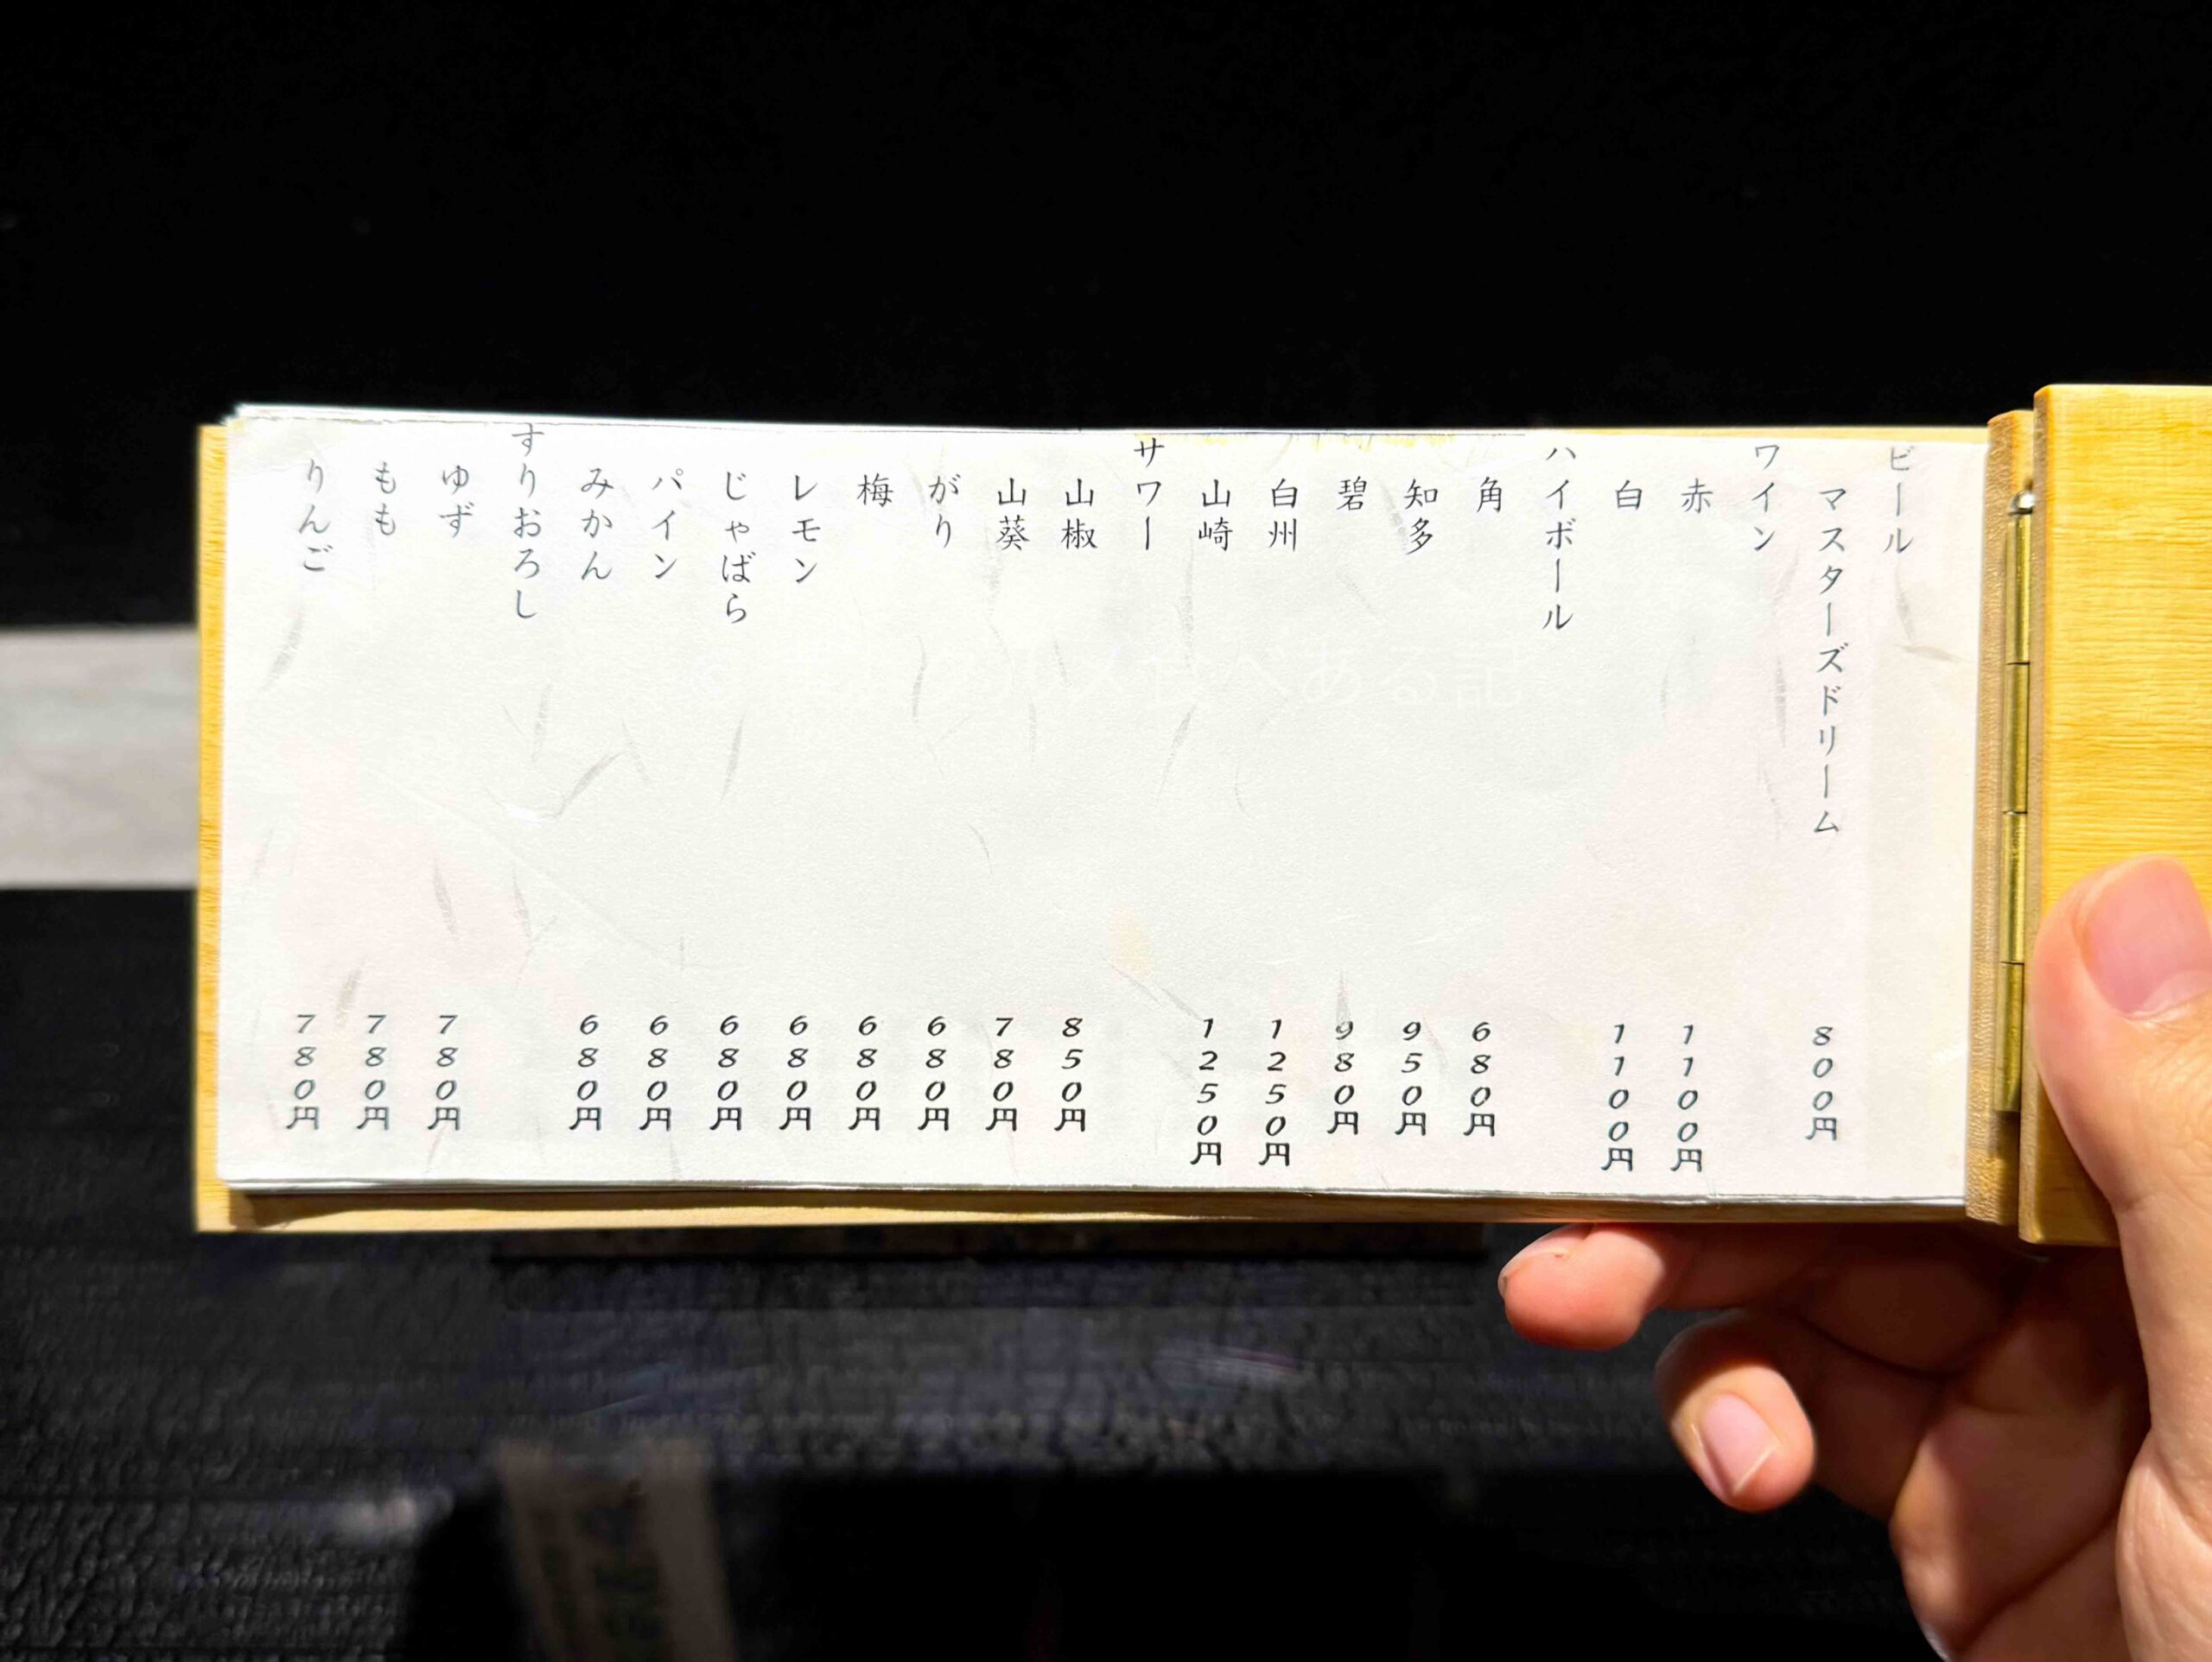 ビール
マスターズドリーム 800円
ワイン
赤 1100円
白 1100円
ハイボール
角 680円
知多 950円
碧 980円
白州 1250円
山崎 1250円
サワー
山椒 850円
山葵 780円
がり 680円
梅 680円
レモン 680円
じゃばら 680円
パイン 680円
みかん 680円
すりおろし
ゆず 780円
もも 780円
りんご 780円